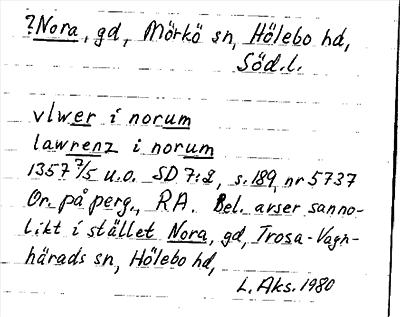 ?Nora, gd, Mörkö sn, Hölebo hd,
Söd.l.
vlwer i norum
lawrenz i norum
1357 7/5 u.o. SD 7:2, s.189, nr 5737
Or. på perg., RA. Bel. avser sanno-
likt i stället Nora, gd, Trosa-Vagn-
härads sn, Hölebo hd,
L. Aks. 1980